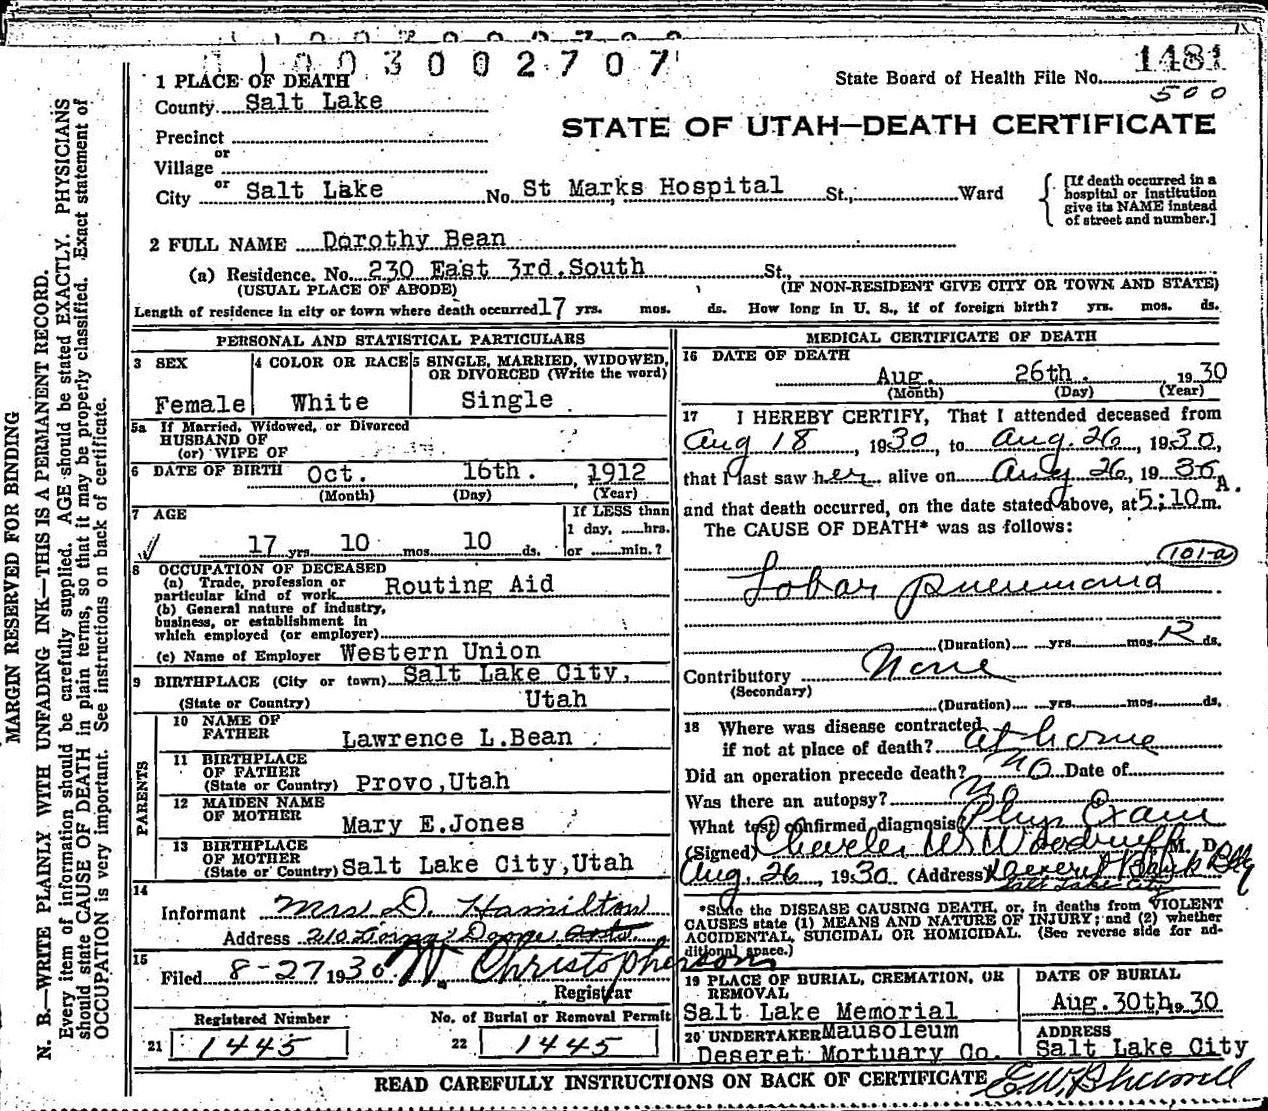 11003002707
1481
State Board of Health File No.
500
1 PLACE OF DEATH
County Salt Lake
STATE OF UTAH—DEATH CERTIFICATE
Precinct
or
Village
or
City Salt Lake No. St Marks Hospital St., Ward
[If death occurred in a hospital or institution give its NAME instead of street and number.]
2 FULL NAME Dorothy Bean
(a) Residence. No. 230 East 3rd. South St.,
(USUAL PLACE OF ABODE) (IF NON-RESIDENT GIVE CITY OR TOWN AND STATE)
Length of residence in city or town where death occurred 17 yrs. mos. ds. How long in U. S., if of foreign birth? yrs. mos. ds.
PERSONAL AND STATISTICAL PARTICULARS
3 SEX 4 COLOR OR RACE 5 SINGLE, MARRIED, WIDOWED, OR DIVORCED (Write the word)
Female White Single
5a If Married, Widowed, or Divorced
HUSBAND OF
(or) WIFE OF
6 DATE OF BIRTH Oct. 16th. , 1912
(Month) (Day) (Year)
7 AGE If LESS than
1 day, hrs.
17 yrs 10 mos 10 ds. or min.?
8 OCCUPATION OF DECEASED
(a) Trade, profession or
particular kind of work Routing Aid
(b) General nature of industry,
business, or establishment in
which employed (or employer)
(c) Name of Employer Western Union
9 BIRTHPLACE (City or town) Salt Lake City,
(State or Country) Utah
PARENTS
10 NAME OF
FATHER Lawrence L.Bean
11 BIRTHPLACE
OF FATHER
(State or Country) Provo,Utah
12 MAIDEN NAME
OF MOTHER Mary E.Jones
13 BIRTHPLACE
OF MOTHER
(State or Country) Salt Lake City,Utah
14
Informant Mrs D. Hamilton
Address 210
15
Filed 8-27 1930 W. Christopherson
Registrar
Registered Number No. of Burial or Removal Permit
21 1445 22 1445
MEDICAL CERTIFICATE OF DEATH
16 DATE OF DEATH
Aug. 26th. 1930
(Month) (Day) (Year)
17 I HEREBY CERTIFY, That I attended deceased from
Aug 18, 1930, to Aug. 26, 1930,
that I last saw her alive on Aug 26, 1930
and that death occurred, on the date stated above, at 5:10 A.m.
The CAUSE OF DEATH* was as follows:
101-a
Lobar pneumonia
(Duration) yrs. mos. 12 ds.
Contributory None
(Secondary)
(Duration) yrs. mos. ds.
18 Where was disease contracted
if not at place of death? at home
Did an operation precede death? No Date of
Was there an autopsy? No
What test confirmed diagnosis? Phys Exam
(Signed) Charles W Woodruff M. D.
Aug. 26, 1930 (Address)
Salt Lake City
*State the DISEASE CAUSING DEATH, or, in deaths from VIOLENT
CAUSES state (1) MEANS AND NATURE OF INJURY; and (2) whether
ACCIDENTAL, SUICIDAL OR HOMICIDAL. (See reverse side for ad-
ditional space.)
19 PLACE OF BURIAL, CREMATION, OR REMOVAL DATE OF BURIAL
Salt Lake Memorial Mausoleum Aug. 30th, 1930
20 UNDERTAKER ADDRESS
Deseret Mortuary Co. Salt Lake City
READ CAREFULLY INSTRUCTIONS ON BACK OF CERTIFICATE
MARGIN RESERVED FOR BINDING
N. B.—WRITE PLAINLY WITH UNFADING INK—THIS IS A PERMANENT RECORD.
Every item of information should be carefully supplied. AGE should be stated EXACTLY. PHYSICIANS
should state CAUSE OF DEATH in plain terms, so that it may be properly classified. Exact statement of
OCCUPATION is very important. See instructions on back of certificate.